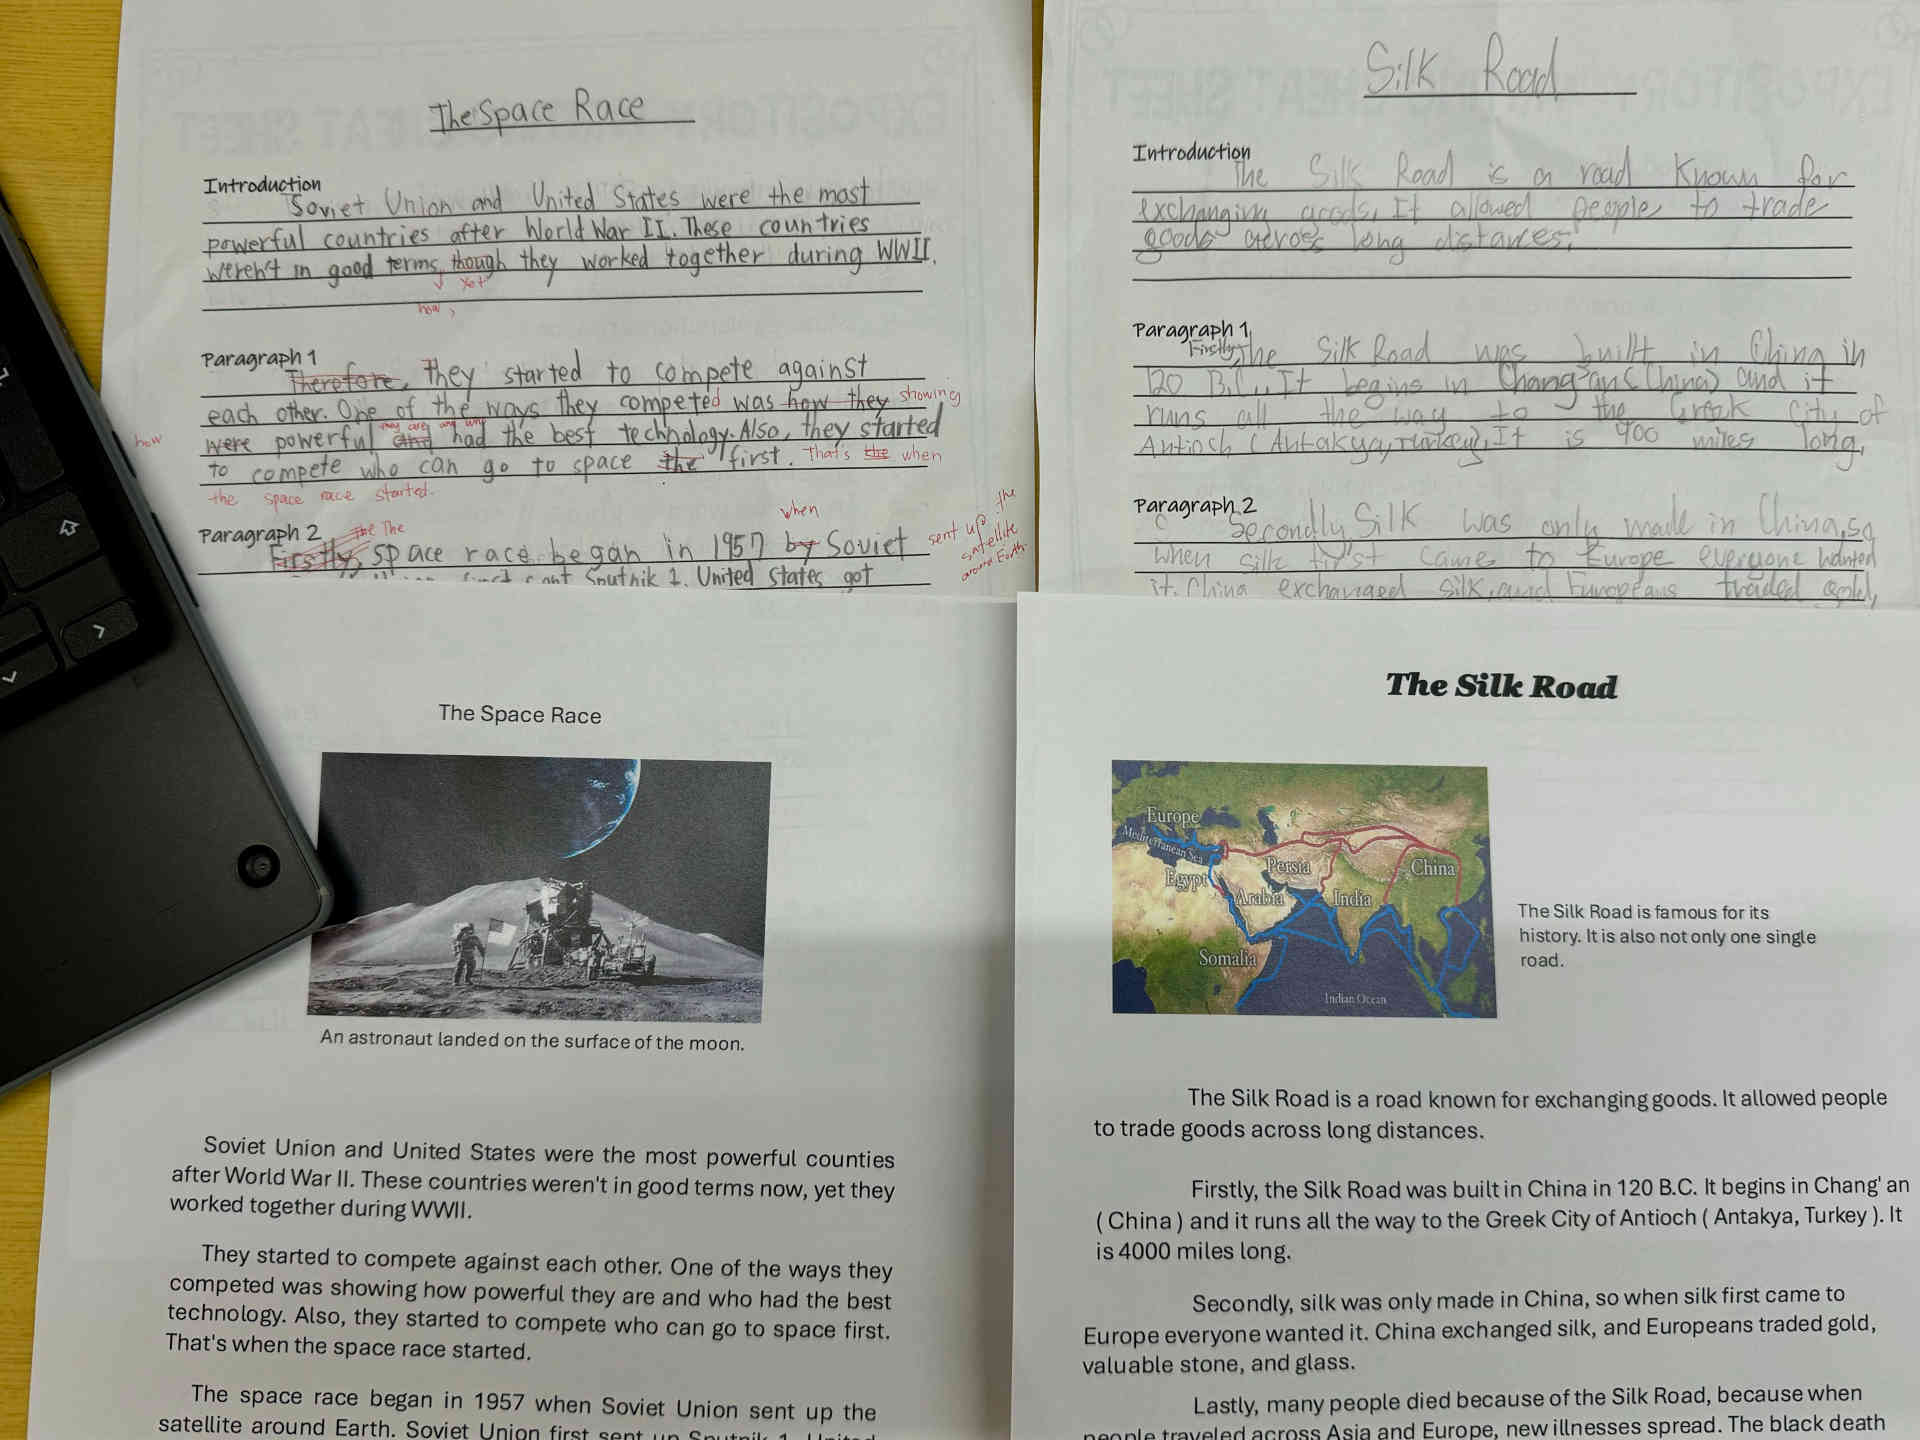 The Space Race
Introduction
Soviet Union and United States were the most
powerful countries after World War II. These countries
weren't in good terms, though they worked together during WWII.
yet
now,
Paragraph 1
Therefore, They started to compete against
each other. One of the ways they competed was how they showing
how were powerful and they are and who had the best technology. Also, they started
to compete who can go to space the first. That's the when
the space race started.
Paragraph 2
Firstly, The The space race began in 1957 by when Soviet sent up the
satellite
around Earth.
first sent Sputnik 1. United States got
Silk Road
Introduction
The Silk Road is a road known for
exchanging goods. It allowed people to trade
goods across long distances.
Paragraph 1
Firstly, The Silk Road was built in China in
120 B.C.. It begins in Chang'an (China) and it
runs all the way to the Greek City of
Antioch (Antakya, Turkey). It is 900 miles long.
Paragraph 2
Secondly Silk was only made in China, so
when silk first came to Europe everyone wanted
it. China exchanged silk, and Europeans traded gold,
The Space Race
An astronaut landed on the surface of the moon.
Soviet Union and United States were the most powerful counties
after World War II. These countries weren't in good terms now, yet they
worked together during WWII.
They started to compete against each other. One of the ways they
competed was showing how powerful they are and who had the best
technology. Also, they started to compete who can go to space first.
That's when the space race started.
The space race began in 1957 when Soviet Union sent up the
satellite around Earth. Soviet Union first sent up Sputnik 1. United
The Silk Road
Europe
Mediterranean Sea
Egypt
Persia
Arabia
India
China
Somalia
Indian Ocean
The Silk Road is famous for its
history. It is also not only one single
road.
The Silk Road is a road known for exchanging goods. It allowed people
to trade goods across long distances.
Firstly, the Silk Road was built in China in 120 B.C. It begins in Chang' an
( China ) and it runs all the way to the Greek City of Antioch ( Antakya, Turkey ). It
is 4000 miles long.
Secondly, silk was only made in China, so when silk first came to
Europe everyone wanted it. China exchanged silk, and Europeans traded gold,
valuable stone, and glass.
Lastly, many people died because of the Silk Road, because when
people traveled across Asia and Europe, new illnesses spread. The black death